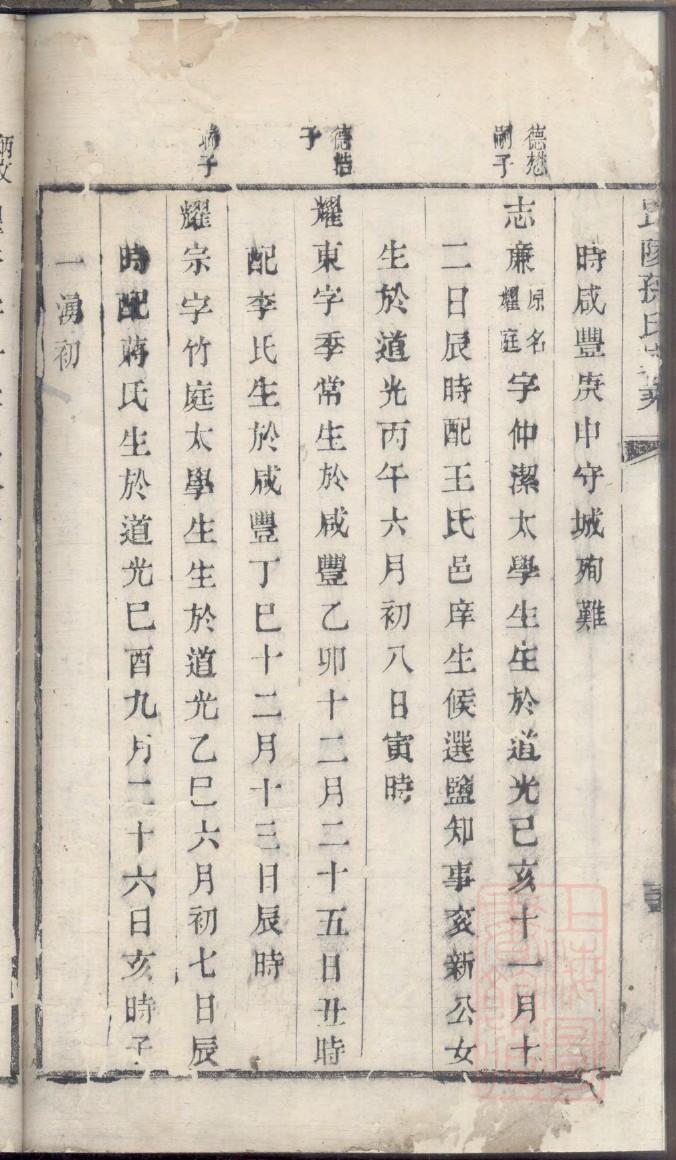 孫氏
時咸豐庚申守城殉難
德懋
嗣子
志廉原名耀庭字仲潔太學生生於道光己亥十一月十
二日辰時配王氏邑庠生候選鹽知事亥新公女
生於道光丙午六月初八日寅時
德皓
子
耀東字季常生於咸豐乙卯十二月二十五日丑時
配李氏生於咸豐丁巳十二月十三日辰時
子
耀宗字竹庭太學生生於道光乙巳六月初七日辰
時配蔣氏生於道光己酉九月二十六日亥時子
一湧初